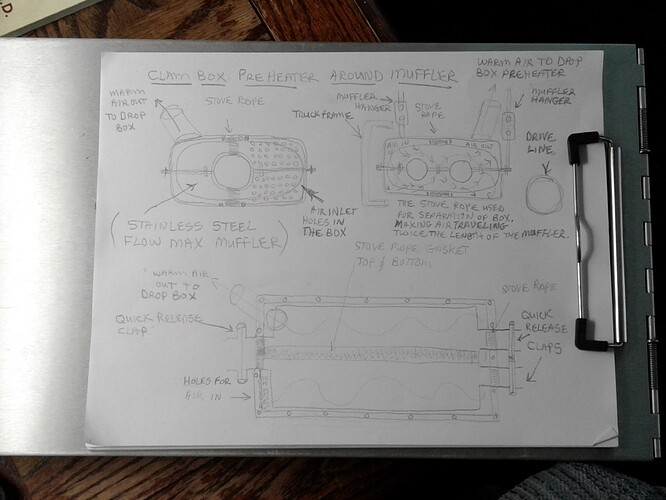 D.
CLAM BOX PREHEATER AROUND MUFFLER
WARM
AIR OUT
TO DROP
BOX
STOVE ROPE
MUFFLER
HANGER
STOVE
ROPE
WARM AIR TO DROP
BOX PREHEATER
MUFFLER
HANGER
TRUCK FRAME
AIR IN
AIR OUT
DRIVE
LINE
(STAINLESS STEEL
FLOW MAX MUFFLER)
AIR INLET
HOLES IN
THE BOX
THE STOVE ROPE USED
FOR SEPARATION OF BOX.
MAKING AIR TRAVELING
TWICE THE LENGTH OF THE MUFFLER.
STOVE ROPE GASKET
TOP & BOTTOM
WARM AIR
OUT TO
DROP BOX
STOVE ROPE
QUICK RELEASE
CLAP
QUICK
RELEASE
CLAPS
HOLES FOR
AIR IN